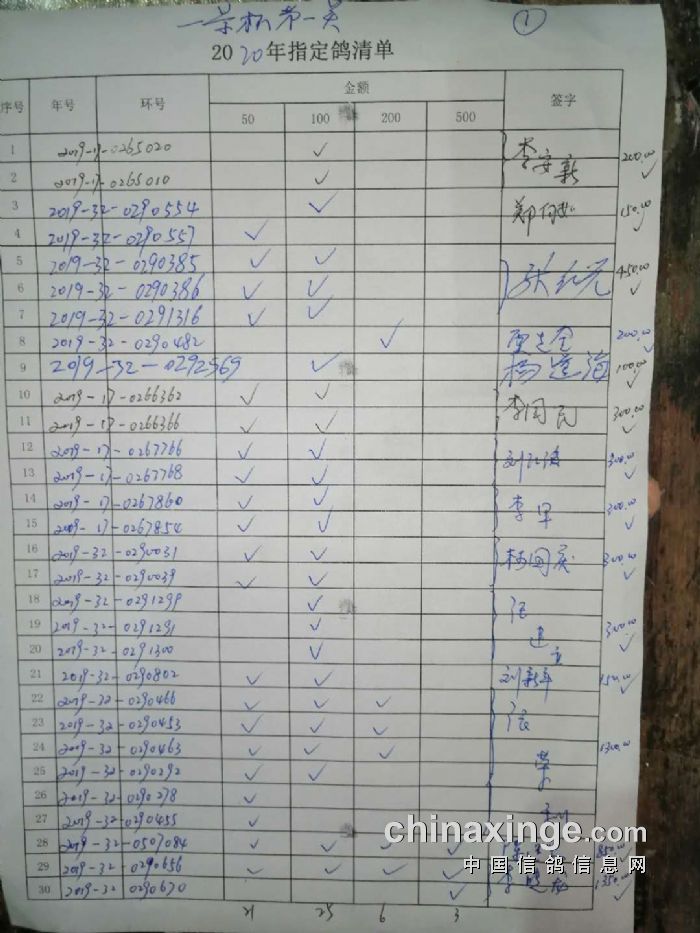 一号杯第一关 ①
2020年指定鸽清单
序号 年号 环号 金额 签字
50 100 200 500
1 2019-17-0265020 ✓ 李安新 200.00 ✓
2 2019-17-0265010 ✓
3 2019-32-0290554 ✓ 150.00 ✓
4 2019-32-0290557 ✓
5 2019-32-0290385 ✓ ✓ 450.00 ✓
6 2019-32-0290386 ✓ ✓
7 2019-32-0291316 ✓ ✓
8 2019-32-0290482 ✓ 200.00 ✓
9 2019-32-0292569 ✓ 杨连海 100.00 ✓
10 2019-17-0266362 ✓ ✓ 李国民 300.00 ✓
11 2019-17-0266366 ✓ ✓
12 2019-17-0267766 ✓ ✓ 300.00 ✓
13 2019-17-0267768 ✓ ✓
14 2019-17-0267860 ✓ ✓ 李军 300.00 ✓
15 2019-17-0267854 ✓ ✓
16 2019-32-0290031 ✓ ✓ 杨国庆 300.00 ✓
17 2019-32-0290039 ✓ ✓
18 2019-32-0291299 ✓ 张
19 2019-32-0291291 ✓ 建 300.00 ✓
20 2019-32-0291300 ✓ 立
21 2019-32-0290802 ✓ ✓ 刘新年 150.00 ✓
22 2019-32-0290466 ✓ ✓ ✓
23 2019-32-0290453 ✓ ✓ ✓ 张
24 2019-32-0290463 ✓ ✓ ✓ 荣 1300.00 ✓
25 2019-32-0290292 ✓ ✓
26 2019-32-0290278 ✓
27 2019-32-0290455 ✓
28 2019-32-0507084 ✓ ✓ ✓ ✓ 850.00 ✓
29 2019-32-0290656 ✓ ✓ ✓ ✓ 1350.00 ✓
30 2019-32-0290670 ✓
21 25 6 3
chinaxinge.com
中国信鸽信息网